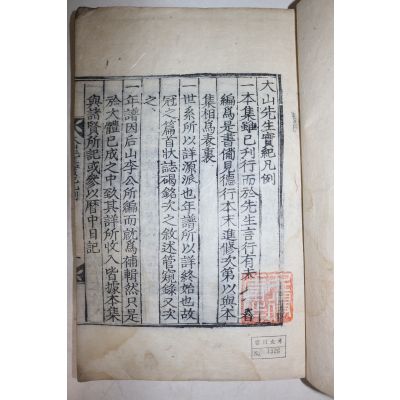 大山先生實紀凡例
一本集雖已刊行而於先生言行有未
編爲是書備見德行本末進修次第以與本
集相爲表裏
一世系所以詳源派也年譜所以詳終始也故
冠之篇首狀誌碣銘次之敘述管窺錄又次
之
一年譜因后山李公所編而就爲補輯然只是
於大體已成之中致其詳所收入皆據本集
與諸賢所記或參以曆中日記